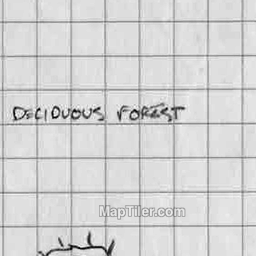 DECIDUOUS FOREST
MapTiler.com